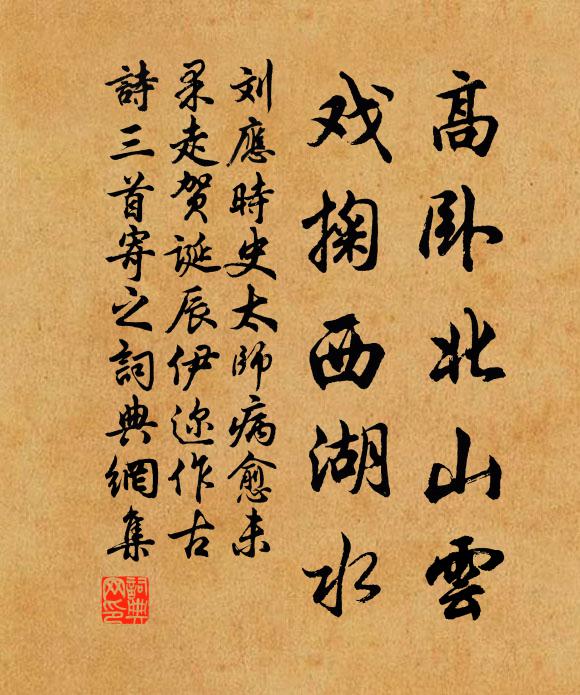 高卧北山雲
戏掬西湖水
刘應時史太師病愈未
果走贺诞辰伊迩作古
詩三首寄之詞典網集
詞典网印